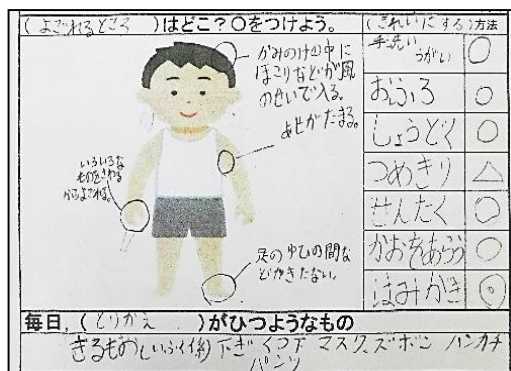 (よごれるところ)はどこ？○をつけよう。
かみのけの中に
ほこりなどが風
のせいで入る。
あせがたまる。
いろいろな
ものをさわる
からよごれる。
足のゆびの間な
どがきたない。
(きれいにする)方法
手洗い
うがい ○
おふろ ○
しょうどく ○
つめきり △
せんたく ○
かおをあらう ○
はみがき ◎
毎日，(とりかえ)がひつようなもの
きるもの 下ぎ くつ下 マスク ズボン ハンカチ
パンツ